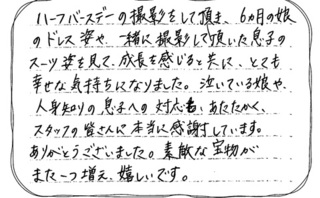 ハーフバースデーの撮影をして頂き、6ヵ月の娘
のドレス姿や、一緒に撮影して頂いた息子の
スーツ姿を見て、成長を感じると共に、とても
幸せな気持ちになりました。泣いている娘や、
人見知りの息子への対応も、あたたかく、
スタッフの皆さんに本当に感謝しています。
ありがとうございました。素敵な宝物が
また一つ増え、嬉しいです。